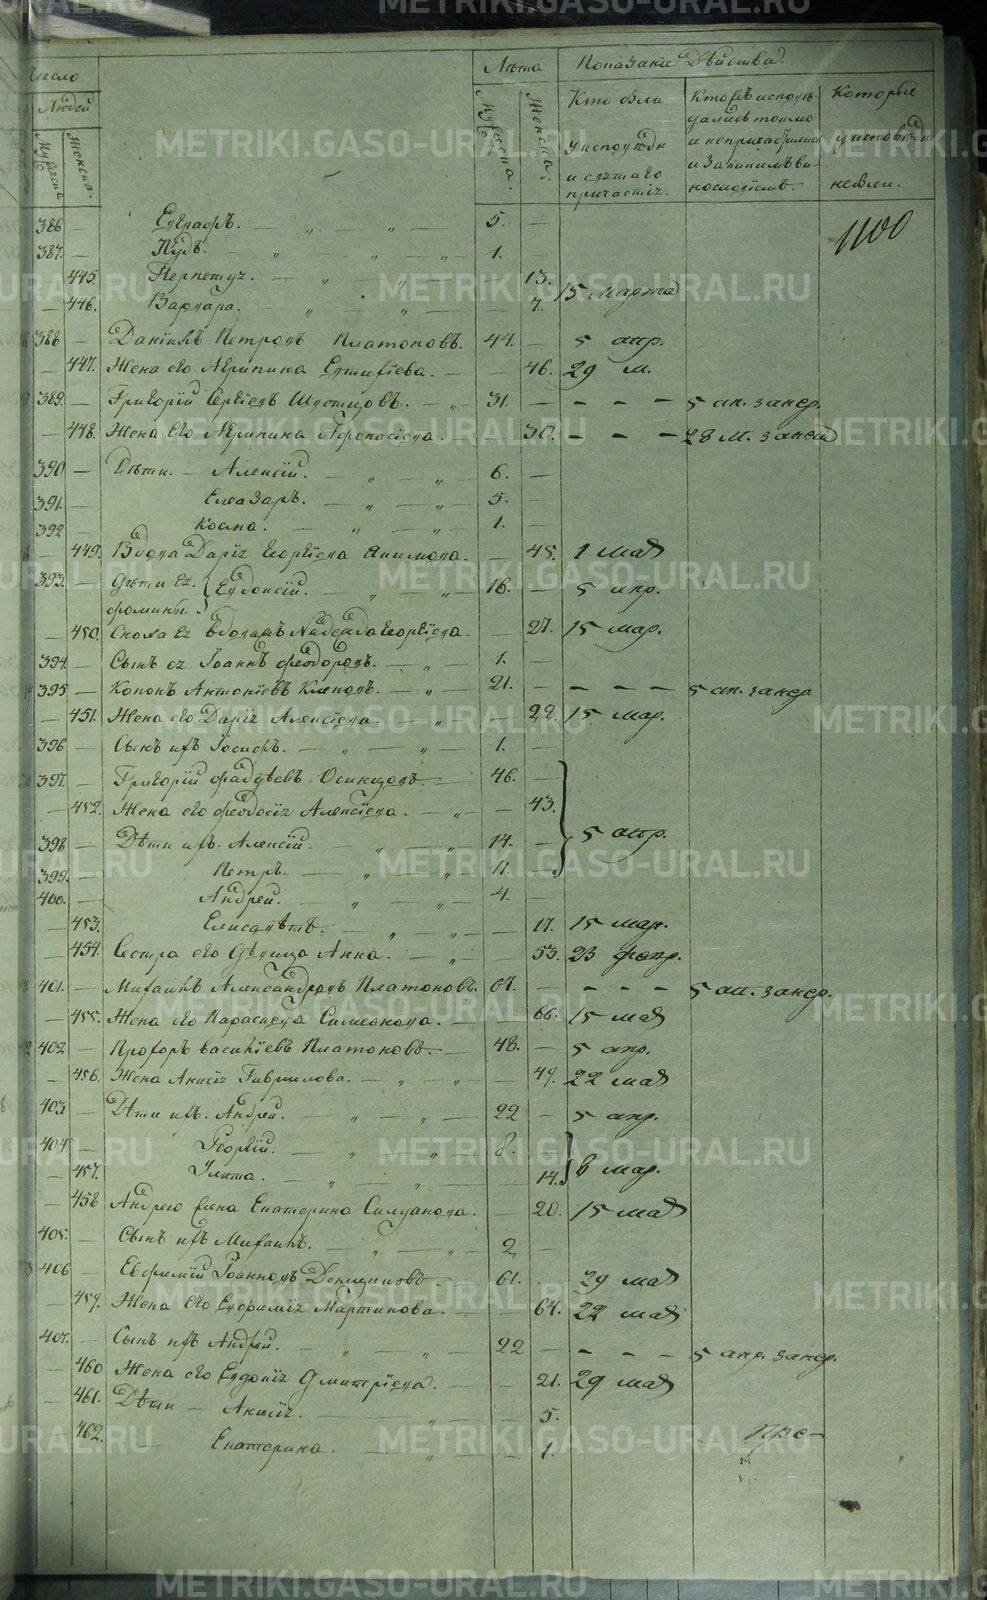 Число Людей
Мужеска
Женска.
Лѣта
Мужеска.
Женска.
Показаніе Дѣйства.
Кто были у исповѣди и святаго причастія.
Кто исповѣдались токмо и непричастились и за какимъ винословіемъ.
Которые у исповѣди небыли.
1100
386 — Евграфъ. — „ — „ — 5. —
387. — Пудъ. — „ — „ — 1. —
— 445. Перпетуя. — „ — „ — 13.
— 446. Варвара. „ „ — 7. 15 марта
388 — Даніилъ Петровъ Платоновъ. 44. — 5 апр.
— 447. Жена его Агрипина Евтифіева. — — 46. 29 м.
389. — Григорій Сергіевъ Шустиковъ. — „ — 31. — — — — 5 ап. занер.
— 448. Жена его Агрипина Афонасіева. — — 30. — — — 28 м. занеис
390 — Дѣти. — Алексій. — „ — „ — 6. —
391. — Елеазаръ. — „ — „ — 5. —
392 — Косма. — „ — „ — 1. —
— 449. Вдова Дарія Георгіева Акимова. — 45. 1 мая
393. — Дѣти ея Ѳомины. Евдокій. — „ — „ — 16. — 5 апр.
— 450. Сноха ея вдовая Надежда Георгіева. — 27. 15 мар.
394. — Сынъ ея Іоаннъ Ѳеодоровъ. — „ — 1. —
395 — Кононъ Антоніевъ Климовъ. — „ — 21. — — — — 5 ап. занер
— 451. Жена его Дарія Алексіева. — „ — — 22. 15 мар.
396 — Сынъ ихъ Іосифъ. — „ — „ — 1. —
397. — Григорій Фаддѣевъ Осинцовъ. — 46. —
— 452. Жена его Ѳеодосія Алексіева. — „ — — 43.
398 — Дѣти ихъ. Алексій. — „ — „ — 14. — 5 апр.
399. — Петръ. — „ — „ 11. —
400. — Андрей. — „ — „ — 4. —
— 453. Елисавета. — „ — „ — — 17. 15 мар.
— 454. Сестра его дѣвица Анна. — „ — — 53. 23 февр.
401. — Михаилъ Александровъ Платоновъ. 67. — — — — 5 ап. занер.
— 455. Жена его Параскева Симеонова. — — 66. 15 мая
402 — Прохоръ Василіевъ Платоновъ. — 48. — 5 апр.
— 456. Жена Анисія Гавриилова. — „ — „ — 49. 22 мая
403. — Дѣти ихъ. Андрей. — „ — „ — 22 — 5 апр.
404 — Георгій. — „ — „ — 8. —
— 457. Улита. — „ — „ — 14. 8 мар.
— 458 Андрею жена Екатерина Силуанова. — 20. 15 мая
405. — Сынъ ихъ Михаилъ. — „ — „ — 2 —
406 — Евфимій Іоанновъ Денщиковъ. — 61. — 29 мая
— 459. Жена его Евфимія Мартинова. — 64. 22 мая
407. — Сынъ ихъ Андрей. — „ — „ — 22 — — — — 5 апр. занер.
— 460 Жена его Евдокія Дмитріева. — — 21. 29 мая
— 461. Дѣти — Анисія. — „ — 5.
— 462. Екатерина. — „ — 1.
Пре-
METRIKI.GASO-URAL.RU